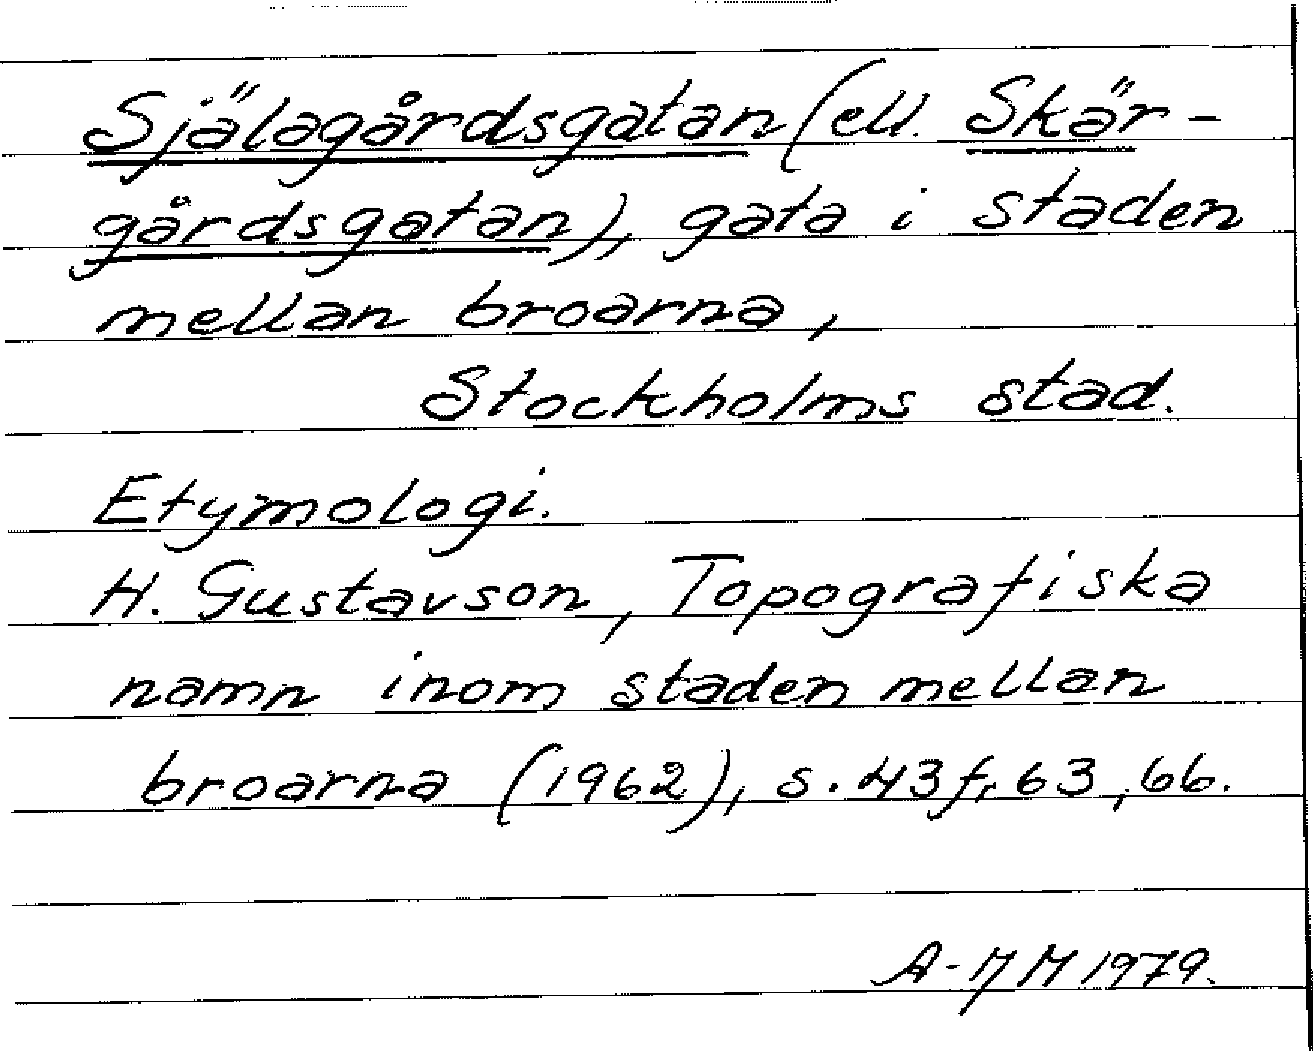 Själagårdsgatan (ell. Skär-
gårdsgatan), gata i staden
mellan broarna,
Stockholms stad.
Etymologi.
H. Gustavson, Topografiska
namn inom staden mellan
broarna (1962), s. 43 f, 63, 66.
A-M M 1979.